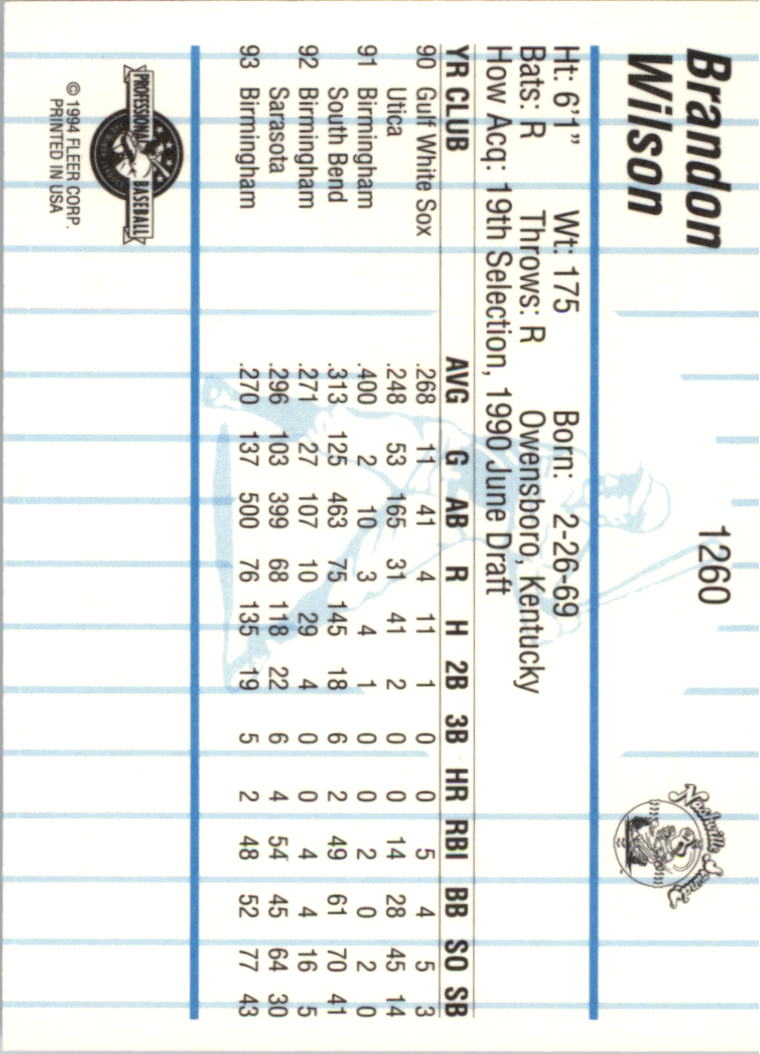 Brandon
Wilson
1260
Nashville Sounds
Ht: 6'1" Wt: 175 Born: 2-26-69
Bats: R Throws: R Owensboro, Kentucky
How Acq: 19th Selection, 1990 June Draft
YR CLUB AVG G AB R H 2B 3B HR RBI BB SO SB
90 Gulf White Sox .268 11 41 4 11 1 0 0 5 4 5 3
Utica .248 53 165 31 41 2 0 0 14 28 45 14
91 Birmingham .400 2 10 3 4 1 0 0 2 0 2 0
South Bend .313 125 463 75 145 18 6 2 49 61 70 41
92 Birmingham .271 27 107 10 29 4 0 0 4 4 16 5
Sarasota .296 103 399 68 118 22 6 4 54 45 64 30
93 Birmingham .270 137 500 76 135 19 5 2 48 52 77 43
PROFESSIONAL BASEBALL
© 1994 FLEER CORP.
PRINTED IN USA